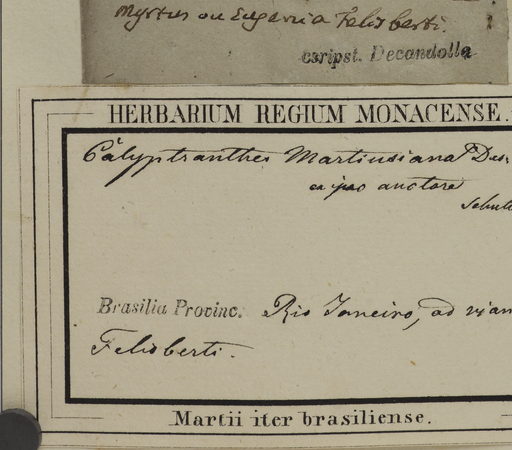 Myrtus ou Eugenia Felisberti.
scripst. Decandolle
HERBARIUM REGIUM MONACENSE.
Calyptranthes Martiusiana Des.
ex ipso auctore
Schult
Brasilia Provinc. Rio Janeiro, ad viam
Felisberti.
Martii iter brasiliense.